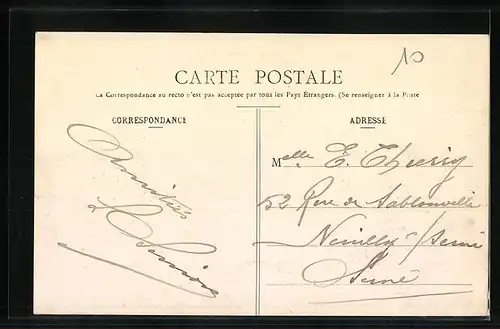 10
CARTE POSTALE
La Correspondance au recto n'est pas acceptée par tous les Pays Etrangers. (Se renseigner à la Poste
CORRESPONDANCE
Amitiés
ADRESSE
Melle E. Thierry
52 Rue de Sablonville
Neuilly s/Seine
Seine